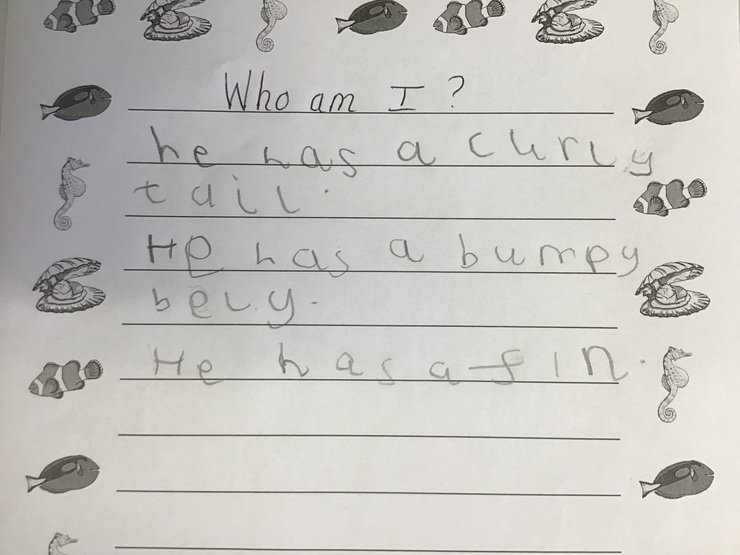 Who am I ?
he has a curly
tail.
He has a bumpy
bely.
He has a fin.